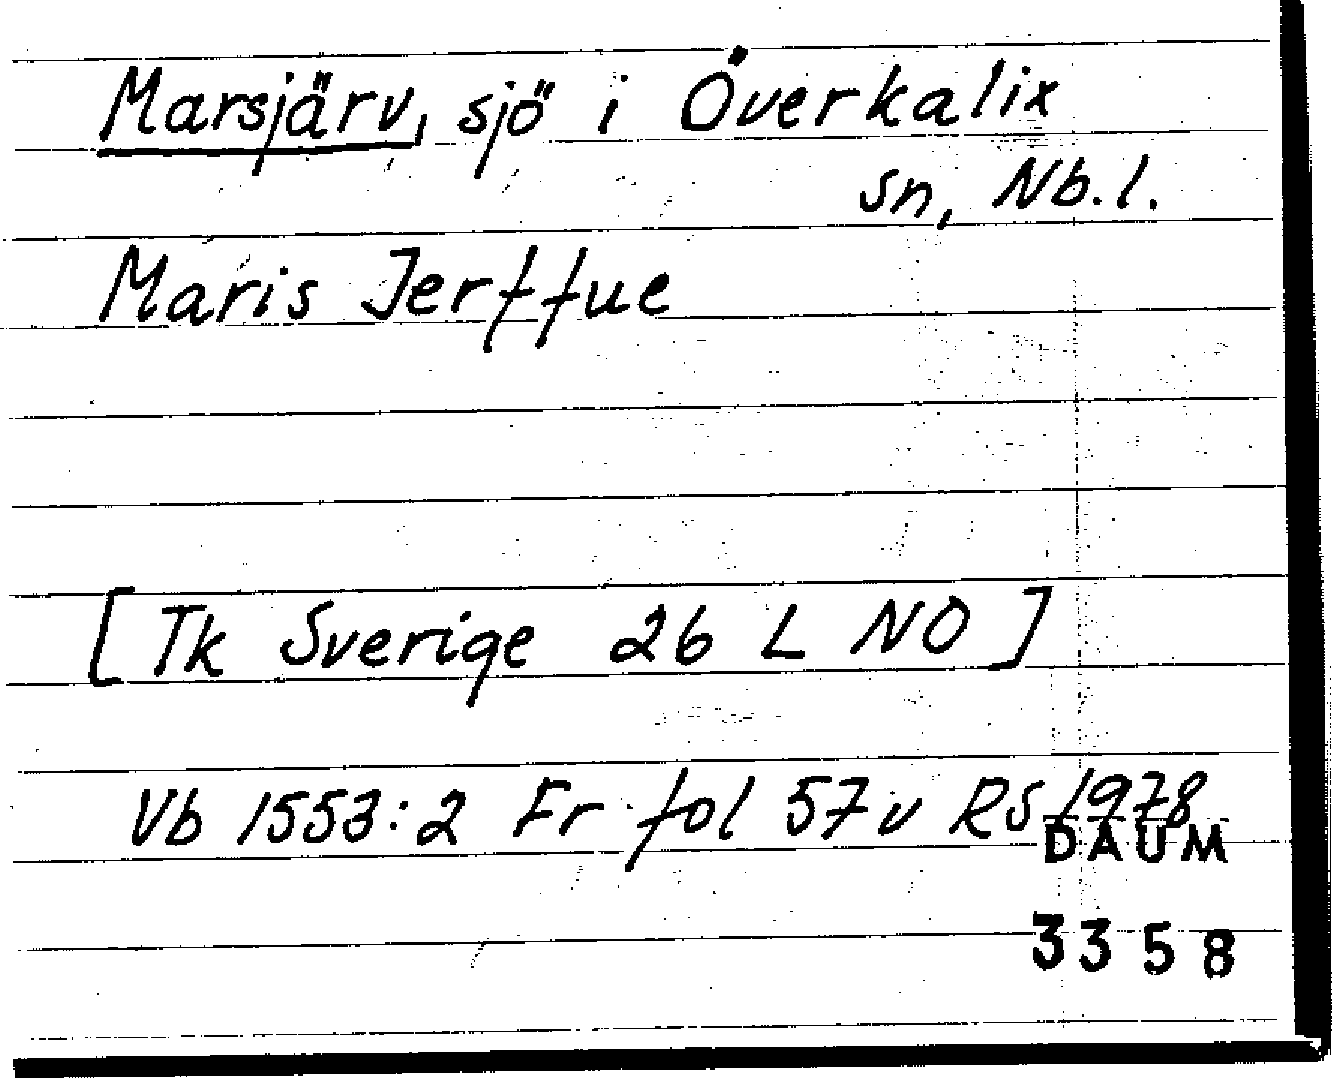 Marsjärv, sjö i Överkalix
sn, Nb.l.
Maris Jerffue
[Tk Sverige 26 L NO]
Vb 1553:2 Fr fol 57 v RS 1978
DAUM
3358